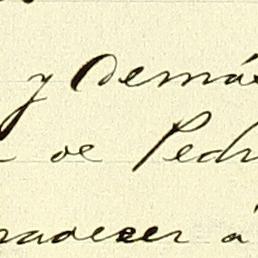 y demás
de Pedr
radecer á